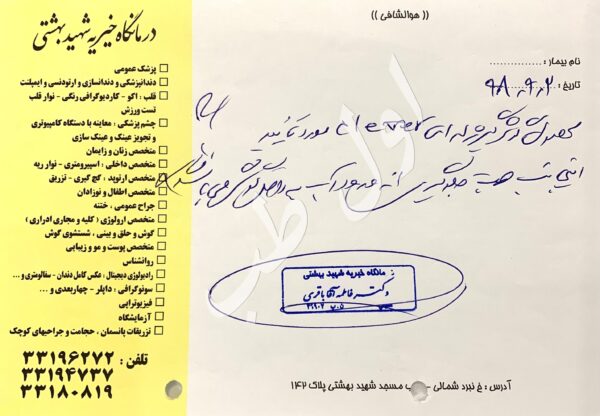 درمانگاه خیریه شهید بهشتی
پزشک عمومی
دندانپزشکی و دندانسازی و ارتودنسی و ایمپلنت
قلب : اکو - کاردیوگرافی رنگی - نوار قلب
تست ورزش
چشم پزشکی : معاینه با دستگاه کامپیوتری
و تجویز عینک و عینک سازی
متخصص زنان و زایمان
متخصص داخلی : اسپیرومتری - نوار ریه
متخصص ارتوپد ، گچ گیری - تزریق
متخصص اطفال و نوزادان
جراح عمومی ، ختنه
متخصص ارولوژی ( کلیه و مجاری ادراری )
گوش و حلق و بینی ، شستشوی گوش
متخصص پوست و مو و زیبایی
روانشناس
رادیولوژی دیجیتال : عکس کامل دندان - سفالومتری و ...
سونوگرافی : داپلر - چهاربعدی و ...
فیزیوتراپی
آزمایشگاه
تزریقات پانسمان ، حجامت و جراحیهای کوچک
تلفن : ۳۳۱۹۶۲۷۲
۳۳۱۹۴۷۳۷
۳۳۱۸۰۸۱۹
(( هوالشافی ))
نام بیمار : ..............
تاریخ : ۹۸,۹,۲
محصول گوش گیر ژله ای clever مورد تایید
اینجانب جهت جلوگیری از ورود آب به داخل گوش می باشد
اول طب
درمانگاه خیریه شهید بهشتی
دکتر فاطمه آقا باقری
آدرس : خ نبرد شمالی - مسجد شهید بهشتی پلاک ۱۴۲